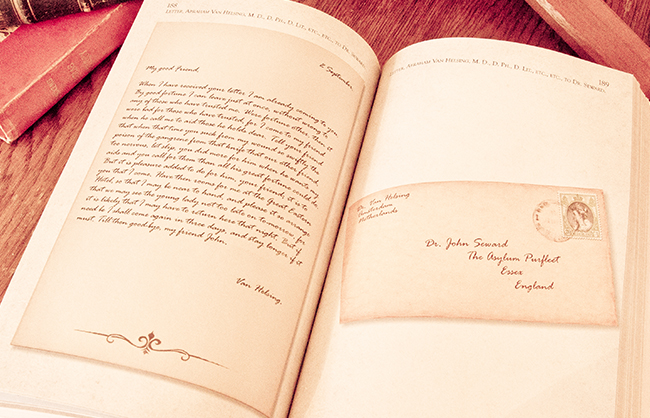 188
Letter, Abraham Van Helsing, M. D., D. Ph., D. Lit., etc., etc., to Dr. Seward.
My good Friend, 2 September.
When I have received your letter I am already coming to you.
By good fortune I can leave just at once, without wrong to
any of those who have trusted me. Were fortune other, then it
were bad for those who have trusted, for I come to my friend
when he call me to aid those he holds dear. Tell your friend
that when that time you suck from my wound so swiftly the
poison of the gangrene from that knife that our other friend,
too nervous, let slip, you did more for him when he wants my
aids and you call for them than all his great fortune could do.
But it is pleasure added to do for him, your friend, it is to
you that I come. Have then rooms for me at the Great Eastern
Hotel, so that I may be near to hand, and please it so arrange
that we may see the young lady not too late on to-morrow, for
it is likely that I may have to return here that night. But if
need be I shall come again in three days, and stay longer if it
must. Till then goodbye, my friend John.
Van Helsing.
189
Letter, Abraham Van Helsing, M. D., D. Ph., D. Lit., etc., etc., to Dr. Seward.
Dr. Van Helsing
Amsterdam
Netherlands
Dr. John Seward
The Asylum Purfleet
Essex
England